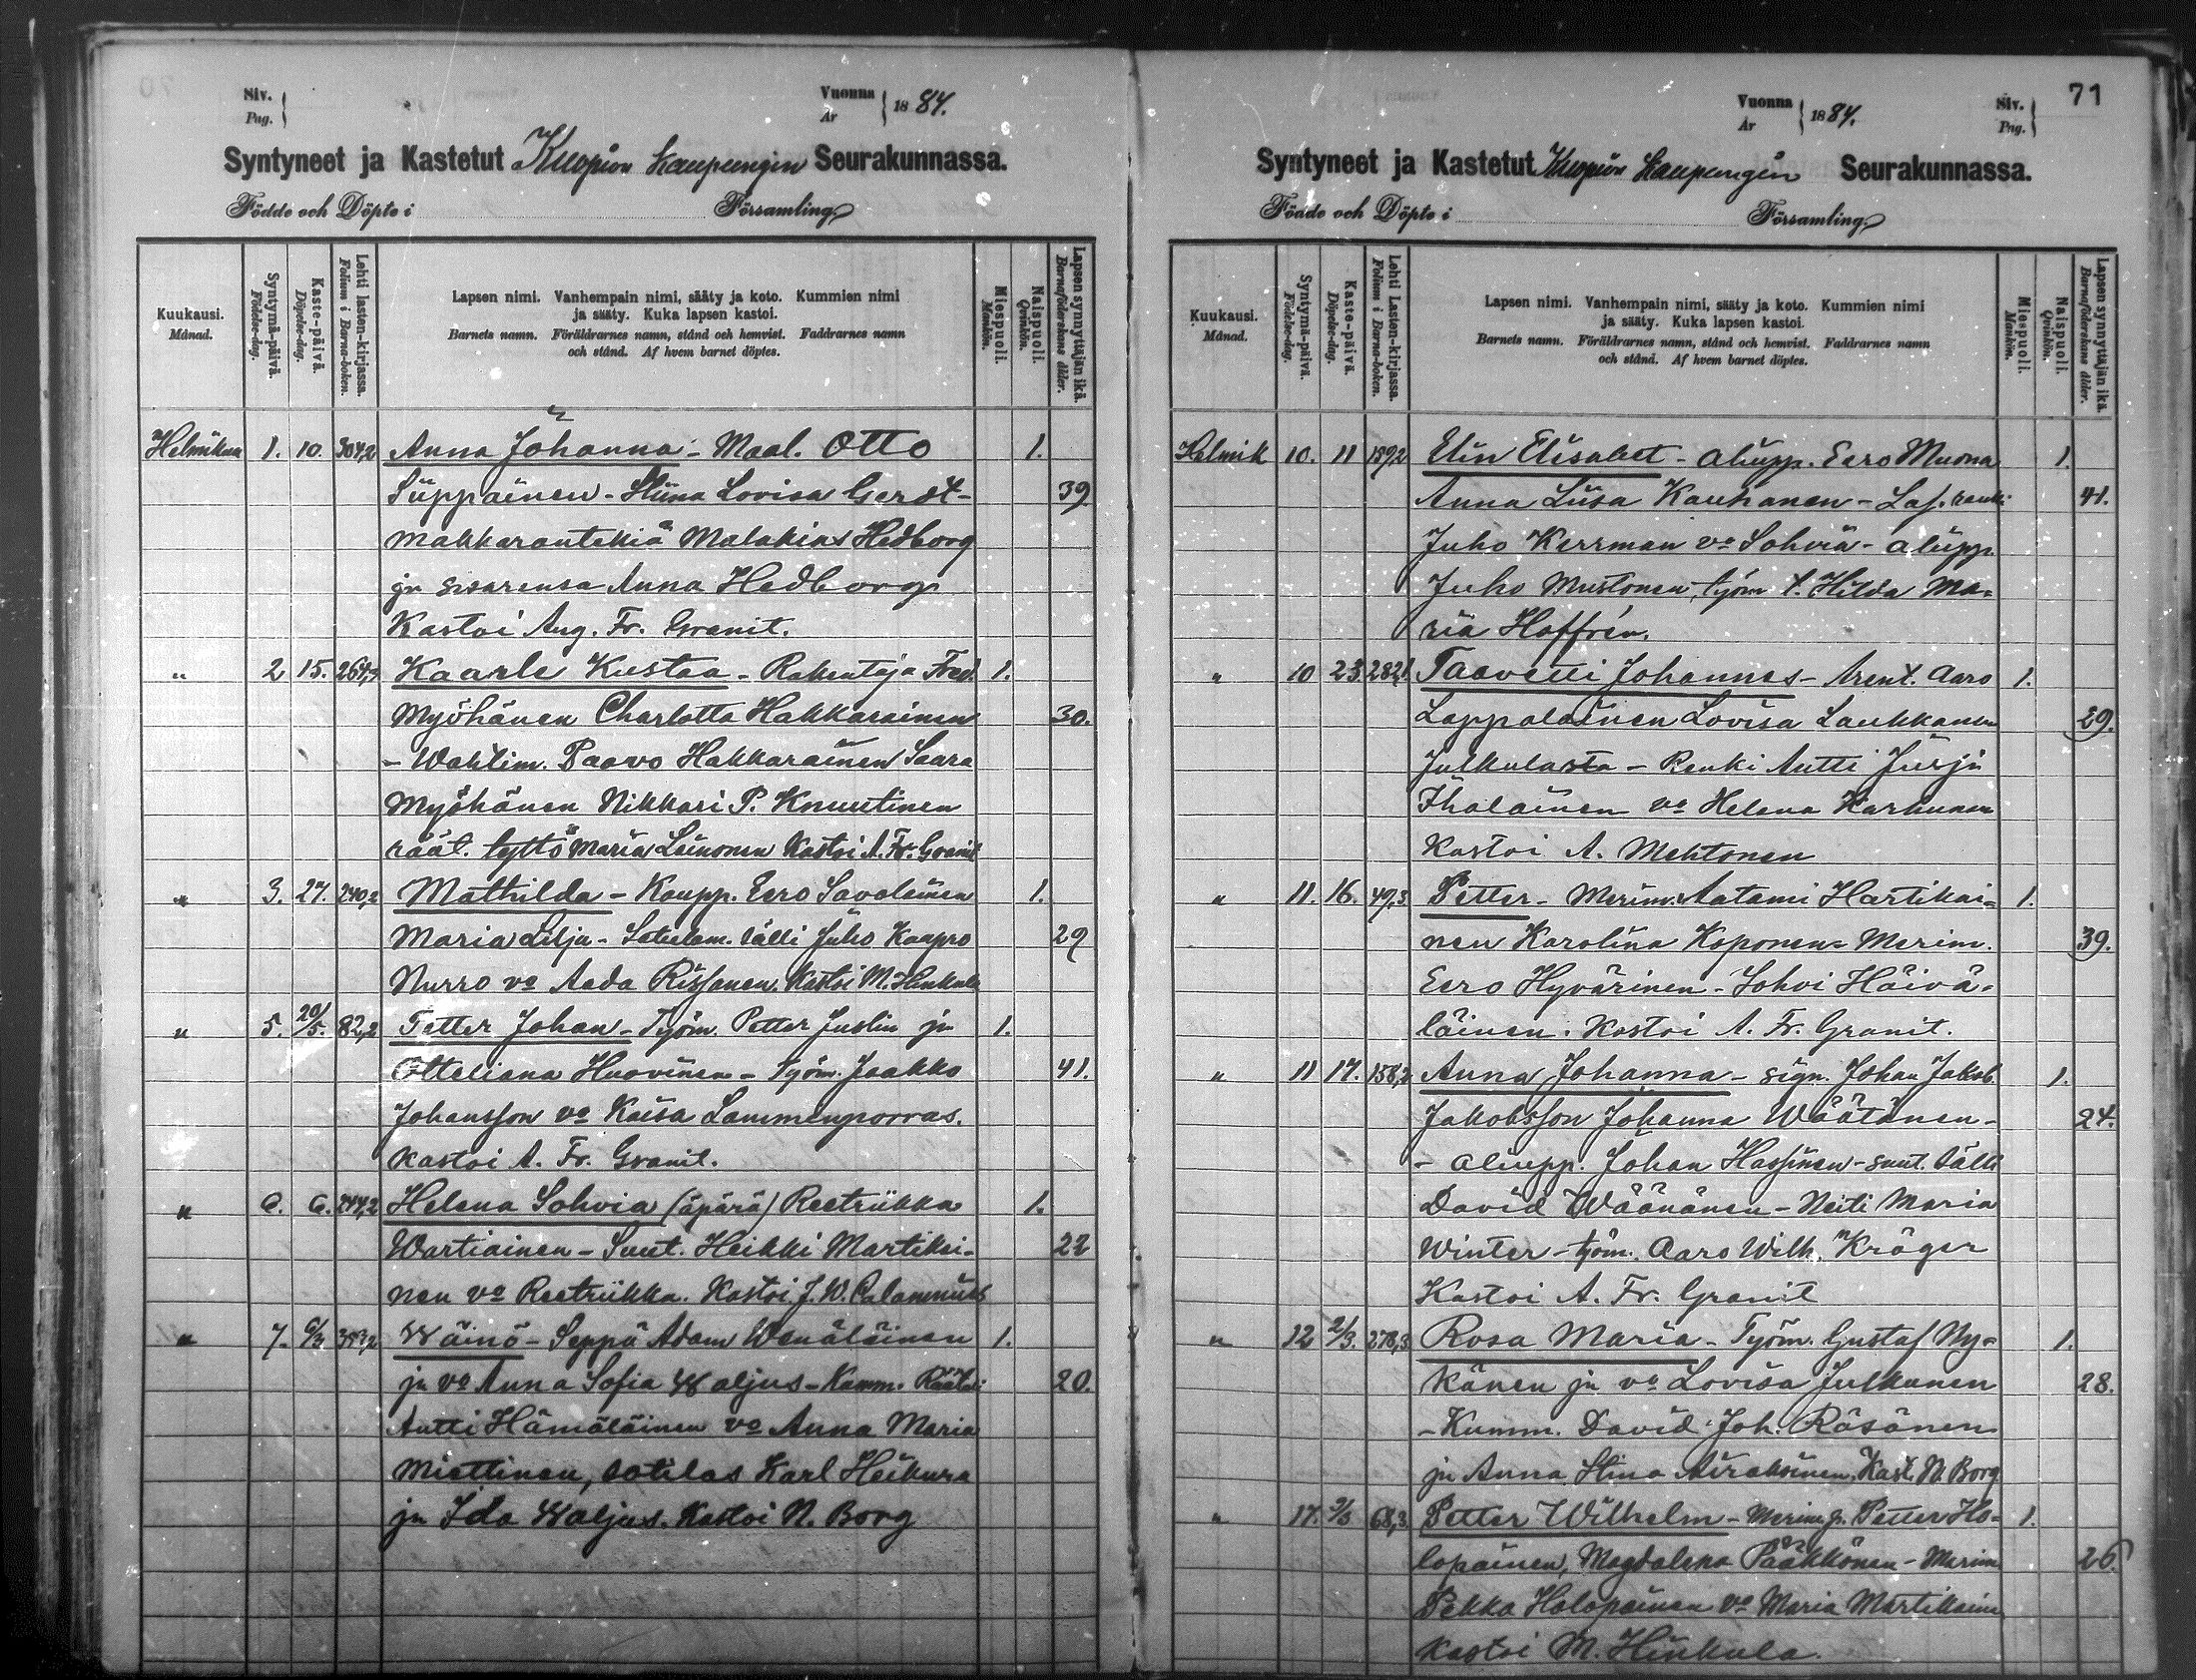 Siv.
Pag.
Vuonna
År
1884.
Syntyneet ja Kastetut Kuopion kaupungin Seurakunnassa.
Födde och Döpte i Församling.
Kuukausi.
Månad.
Syntymä-päivä.
Födelse-dag.
Kaste-päivä.
Döpelse-dag.
Lehti lasten-kirjassa.
Folium i Barna-boken.
Lapsen nimi. Vanhempain nimi, sääty ja koto. Kummien nimi
ja sääty. Kuka lapsen kastoi.
Barnets namn. Föräldrarnes namn, stånd och hemvist. Faddrarnes namn
och stånd. Af hvem barnet döptes.
Miespuoli.
Mankön.
Naispuoli.
Qvinkön.
Lapsen synnyttäjän ikä.
Barnaföderskans ålder.
Helmikuu 1. 10. 304,2 Anna Johanna - Maal. Otto 1.
Siippainen - Stiina Lovisa Gerdt - 39
makkarantekiä Malakias Hedborg
ja sisarensa Anna Hedborg
Kastoi Aug. Fr. Granit.
" 2 15. Kaarle Kustaa - Rakentaja Fred. 1.
Myöhänen Charlotta Hakkarainen 30.
- Wahtim. Paavo Hakkarainen Saara
Myöhänen Nikkari P. Knuutinen
räät. tyttö Maria Leinonen Kastoi A. Fr. Granit
" 3. 27. 240,2 Mathilda - Kaupp. Eero Savolainen 1.
Maria Lilja - Satulam. sälli Juho Kaapro 29
Nurro vo Aeda Rissanen. Kastoi M. Hinkula
" 5. 20/5. 82,2 Petter Johan - Työm. Petter Juslin ja 1.
Otteliana Huovinen - Työm. Jaakko 41.
Johansson vo Kaisa Lammenporras.
Kastoi A. Fr. Granit.
" 6. 6. 244,2 Helena Sohvia (äpärä) Reetriikka 1.
Wartiainen - Suut. Heikki Martikai- 22
nen vo Reetriikka. Kastoi J. W. Calamnius
" 7. 6/3 353,2 Wäinö - Seppä Adam Wenäläinen 1.
ja vo Anna Sofia Waljus - Kumm. Räätäli 20.
Antti Hämäläinen vo Anna Maria
Miettinen, sotilas Karl Heikura
ja Ida Waljus. Kastoi N. Borg
Vuonna
År
1884.
Siv.
Pag.
71
Syntyneet ja Kastetut Kuopion kaupungin Seurakunnassa.
Födde och Döpte i Församling.
Kuukausi.
Månad.
Syntymä-päivä.
Födelse-dag.
Kaste-päivä.
Döpelse-dag.
Lehti Lasten-kirjassa.
Folium i Barna-boken.
Lapsen nimi. Vanhempain nimi, sääty ja koto. Kummien nimi
ja sääty. Kuka lapsen kastoi.
Barnets namn. Föräldrarnes namn, stånd och hemvist. Faddrarnes namn
och stånd. Af hvem barnet döptes.
Miespuoli.
Mankön.
Naispuoli.
Qvinkön.
Lapsen synnyttäjän ikä.
Barnaföderskans ålder.
Helmik 10. 11 159,2 Elin Elisabet - aliupp. Eero Muona 1.
Anna Liisa Kauhanen - Las. renki 41.
Juho Kerrman vo Sohvia - aliupp.
Juho Mustonen, työm t. Hilda Ma-
ria Hoffrén.
" 10 23 282,1 Taavetti Johannes - Arent. Aaro 1.
Lappalainen Lovisa Laukkanen 29.
Julkulasta - Renki Antti Jurja
Ihalainen vo Helena Karhunen
Kastoi A. Mehtonen
" 11. 16. 49,3 Petter - Merim. Aatami Hartikai- 1.
nen Karolina Koponen - Merim. 39.
Eero Hyvärinen - Sohvi Häivä-
läinen. Kastoi A. Fr. Granit.
" 11 17. 158,2 Anna Johanna - sign. Johan Jakob. 1.
Jakobsson Johanna Wäätänen - 24.
- aliupp. Johan Hassinen - suut. sälli
David Wäänänen - Neiti Maria
Winter - työm. Aaro Wilh. Kröger
Kastoi A. Fr. Granit
" 12 2/3. 278,3 Rosa Maria - Työm. Gustaf Ny- 1.
känen ja vo Lovisa Julkunen 28.
- Kumm. David Joh. Räsänen
ja Anna Stina Airaksinen, Kast. N. Borg
" 17. 68,3 Petter Wilhelm - Merim. Petter Ho- 1.
lopainen, Magdalena Pääkkönen - Merim 26
Pekka Holopainen vo Maria Martikain
Kastoi M. Hinkula.